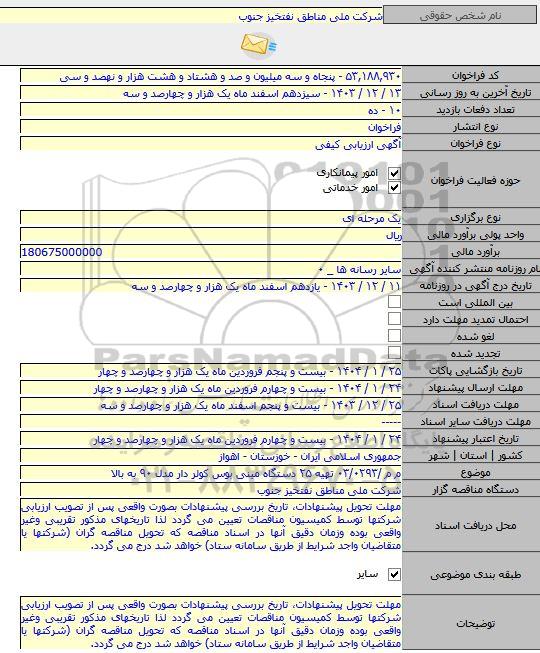 نام شخص حقوقی
شرکت ملی مناطق نفتخیز جنوب
کد فراخوان
۵۳,۱۸۸,۹۳۰ - پنجاه و سه میلیون و صد و هشتاد و هشت هزار و نهصد و سی
تاریخ آخرین به روز رسانی
۱۳ / ۱۲ / ۱۴۰۳ - سیزدهم اسفند ماه یک هزار و چهارصد و سه
تعداد دفعات بازدید
۱۰ - ده
نوع انتشار
فراخوان
نوع فراخوان
آگهی ارزیابی کیفی
حوزه فعالیت فراخوان
امور پیمانکاری
امور خدماتی
نوع برگزاری
یک مرحله ای
واحد پولی برآورد مالی
ریال
برآورد مالی
180675000000
نام روزنامه منتشر کننده آگهی
سایر رسانه ها _ ۰
تاریخ درج آگهی در روزنامه
۱۱ / ۱۲ / ۱۴۰۳ - یازدهم اسفند ماه یک هزار و چهارصد و سه
بین المللی است
احتمال تمدید مهلت دارد
لغو شده
تجدید شده
تاریخ بازگشایی پاکات
۲۵ / ۱ / ۱۴۰۴ - بیست و پنجم فروردین ماه یک هزار و چهارصد و چهار
مهلت ارسال پیشنهاد
۲۴ / ۱ / ۱۴۰۴ - بیست و چهارم فروردین ماه یک هزار و چهارصد و چهار
مهلت دریافت اسناد
۲۵ / ۱۲ / ۱۴۰۳ - بیست و پنجم اسفند ماه یک هزار و چهارصد و سه
مهلت دریافت سایر اسناد
-----
تاریخ اعتبار پیشنهاد
۲۴ / ۱ / ۱۴۰۴ - بیست و چهارم فروردین ماه یک هزار و چهارصد و چهار
کشور | استان | شهر
جمهوری اسلامی ایران - خوزستان - اهواز
موضوع
م م /۰۳/۰۲۹۳ تهیه ۲۵ دستگاه مینی بوس کولر دار مدل ۹۰ به بالا
دستگاه مناقصه گزار
شرکت ملی مناطق نفتخیز جنوب
محل دریافت اسناد
مهلت تحویل پیشنهادات، تاریخ بررسی پیشنهادات بصورت واقعی پس از تصویب ارزیابی
شرکتها توسط کمیسیون مناقصات تعیین می گردد لذا تاریخهای مذکور تقریبی وغیر
واقعی بوده وزمان دقیق آنها در اسناد مناقصه که تحویل مناقصه گران (شرکتها یا
متقاضیان واجد شرایط از طریق سامانه ستاد) خواهد شد درج می گردد.
طبقه بندی موضوعی
سایر
توضیحات
مهلت تحویل پیشنهادات، تاریخ بررسی پیشنهادات بصورت واقعی پس از تصویب ارزیابی
شرکتها توسط کمیسیون مناقصات تعیین می گردد لذا تاریخهای مذکور تقریبی وغیر
واقعی بوده وزمان دقیق آنها در اسناد مناقصه که تحویل مناقصه گران (شرکتها یا
متقاضیان واجد شرایط از طریق سامانه ستاد) خواهد شد درج می گردد.
ParsNamadData